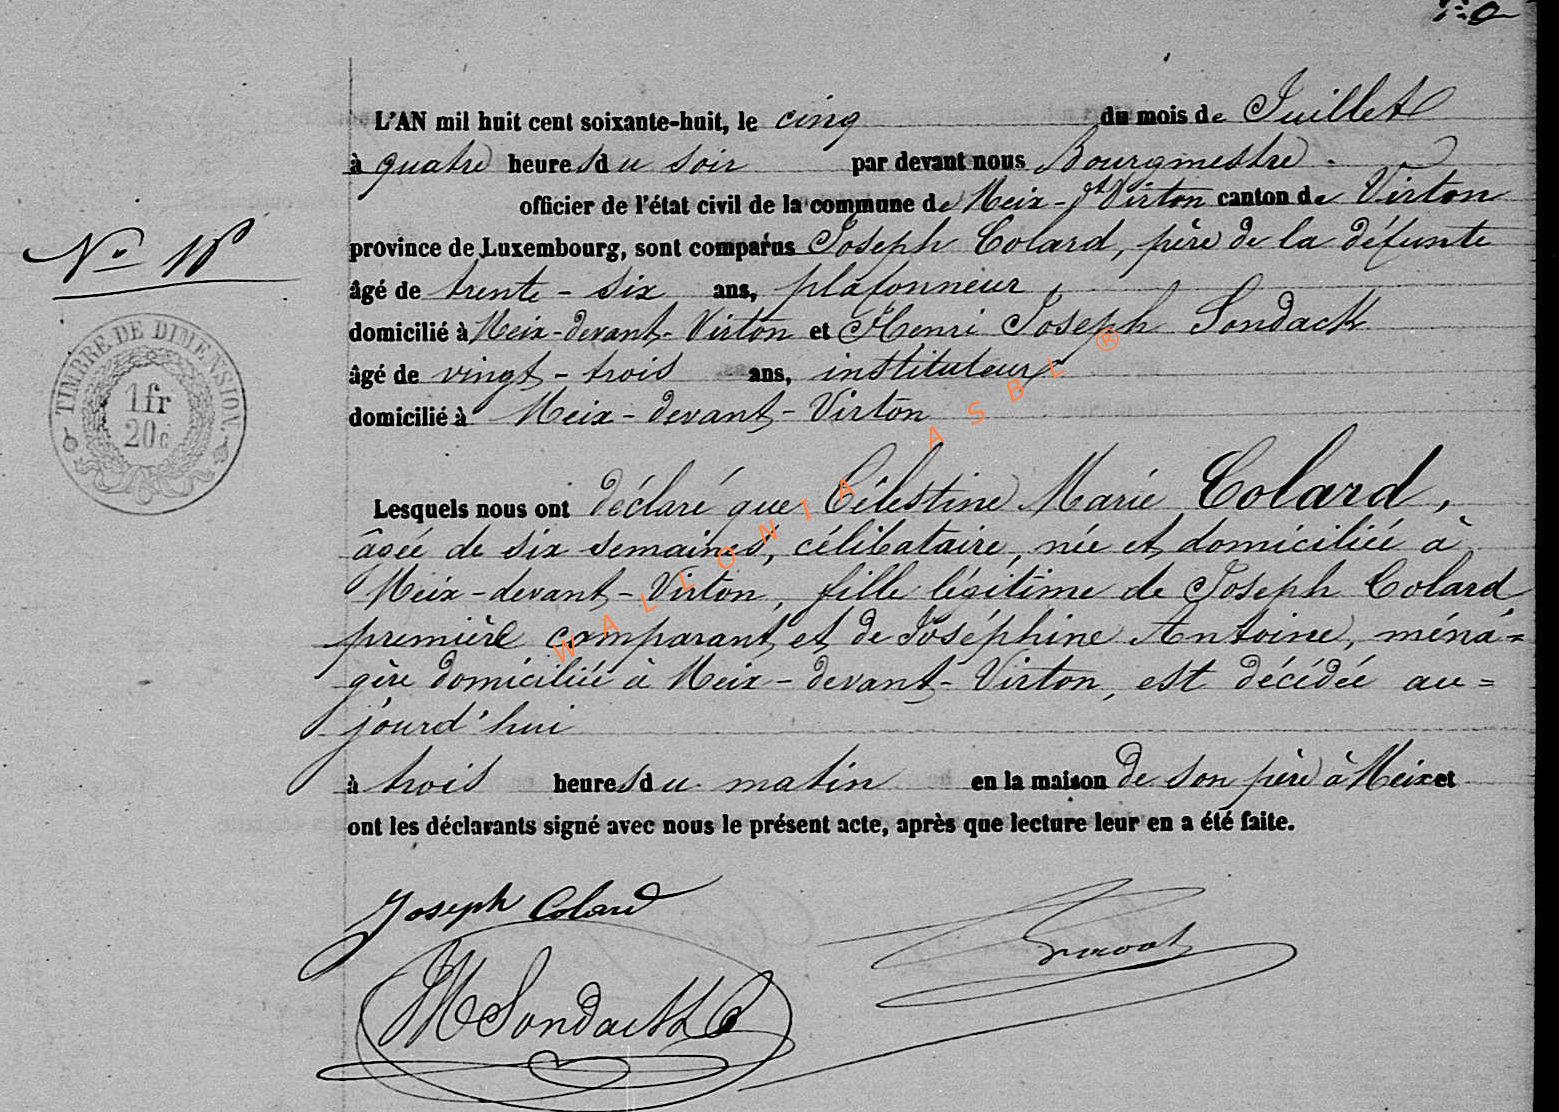 L'AN mil huit cent soixante-huit, le cinq du mois de Juillet
à quatre heures du soir par devant nous Bourgmestre.
officier de l'état civil de la commune de Meix-dt Virton canton de Virton
province de Luxembourg, sont comparus Joseph Colard, père de la défunte
âgé de trente-six ans, plafonneur,
domicilié à Meix-devant-Virton et Henri Joseph Sondack
âgé de vingt-trois ans, instituteur
domicilié à Meix-devant-Virton
Lesquels nous ont déclaré que Célestine Marie Colard,
âgée de six semaines, célibataire, née et domiciliée à
Meix-devant-Virton, fille légitime de Joseph Colard
première comparant et de Joséphine Antoine, ména=
gère domiciliée à Meix-devant-Virton, est décédée au=
jourd'hui
à trois heures du matin en la maison de son père à Meix et
ont les déclarants signé avec nous le présent acte, après que lecture leur en a été faite.
Joseph Colard
HSondack
No 18
TIMBRE DE DIMENSION
1fr
20c
WALLONIA ASBL ®